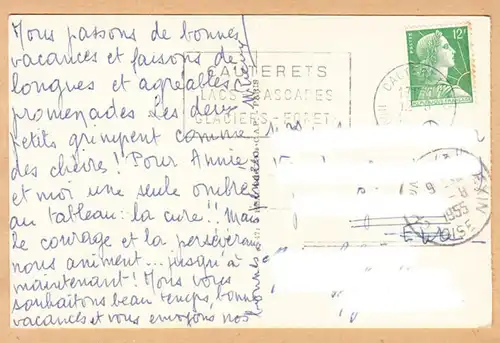 Nous passons de bonnes
vacances et faisons de
longues et agréables
promenades Les deux
petits grimpent comme
des chèvres! Pour Annie
et moi une seule ombre
au tableau: la cure!! Mais
le courage et la persévérance
nous animent... jusqu'à
maintenant! Nous vous
souhaitons beau temps, bonnes
vacances et vous envoyons nos
CAUTERETS
LACS-CASCADES
GLACIERS-FORET
POSTES
12F
1955